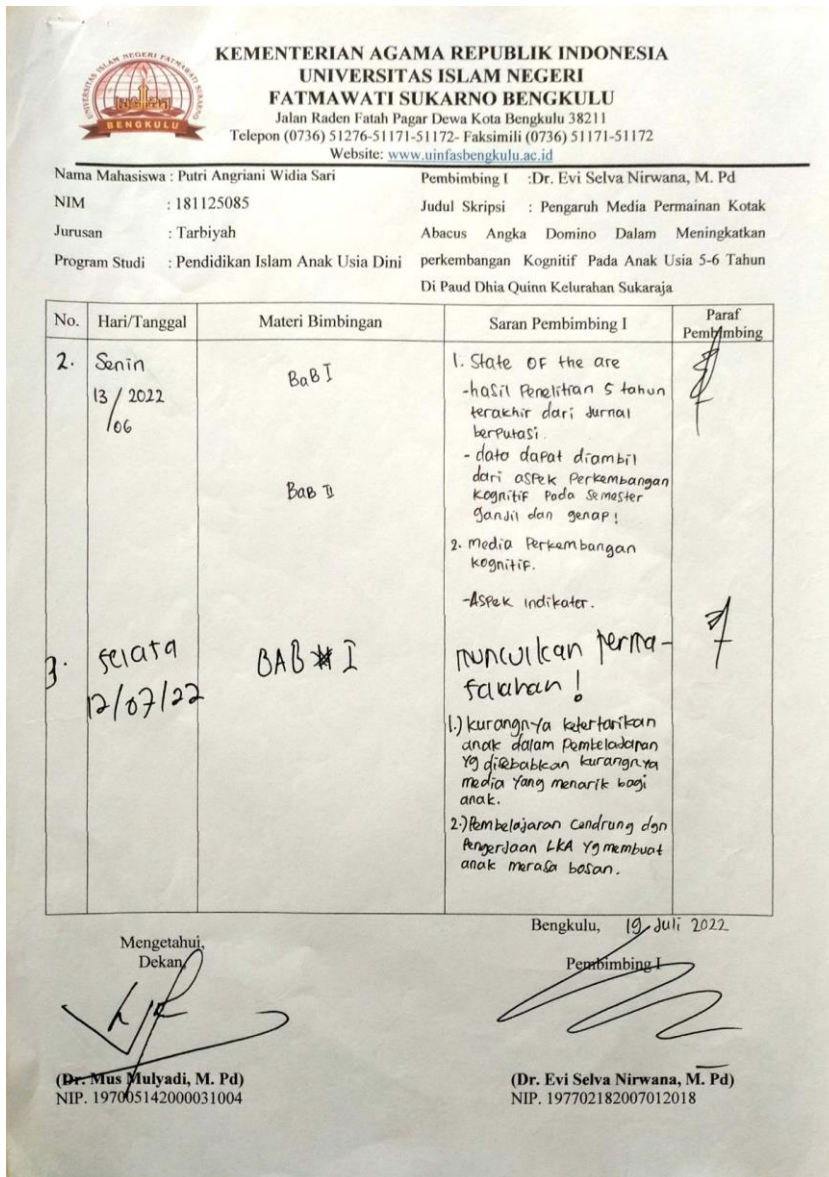 UNIVERSITAS ISLAM NEGERI FATMAWATI SUKARNO
BENGKULU
KEMENTERIAN AGAMA REPUBLIK INDONESIA
UNIVERSITAS ISLAM NEGERI
FATMAWATI SUKARNO BENGKULU
Jalan Raden Fatah Pagar Dewa Kota Bengkulu 38211
Telepon (0736) 51276-51171-51172- Faksimili (0736) 51171-51172
Website: www.uinfasbengkulu.ac.id
Nama Mahasiswa : Putri Angriani Widia Sari
NIM : 181125085
Jurusan : Tarbiyah
Program Studi : Pendidikan Islam Anak Usia Dini
Pembimbing I :Dr. Evi Selva Nirwana, M. Pd
Judul Skripsi : Pengaruh Media Permainan Kotak
Abacus Angka Domino Dalam Meningkatkan
perkembangan Kognitif Pada Anak Usia 5-6 Tahun
Di Paud Dhia Quinn Kelurahan Sukaraja
No. Hari/Tanggal Materi Bimbingan Saran Pembimbing I Paraf
Pembimbing
2. Senin
13/2022
/06
BaB I
BaB II
1. State OF the are
-hasil Penelitian 5 tahun
terakhir dari Jurnal
berputasi.
- dato dapat diambil
dari asPek Perkembangan
kognitif Pada Semester
ganjil dan genap!
2. media Perkembangan
kognitif.
-Aspek indikater.
3. selasa
12/07/22
BAB I
munculkan perma-
salahan!
1.) kurangnya ketertarikan
anak dalam Pembelajaran
yg disebabkan kurangnya
media yang menarik bagi
anak.
2.) Pembelajaran Cendrung dgn
Pengerjaan LKA Yg membuat
anak merasa bosan.
Bengkulu, 19 Juli 2022
Mengetahui,
Dekan
(Dr. Mus Mulyadi, M. Pd)
NIP. 197005142000031004
Pembimbing I
(Dr. Evi Selva Nirwana, M. Pd)
NIP. 197702182007012018